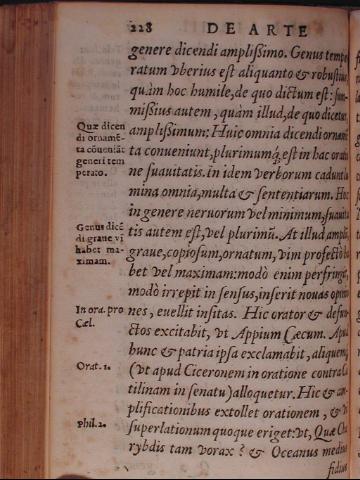 228 DE ARTE
genere dicendi ampliſsimo. Genus tempe
ratum vberius eſt aliquanto & robuſtius
quàm hoc humile, de quo dictum eſt: ſum-
miſsius autem, quàm illud, de quo dicetur,
ampliſsimum: Huic omnia dicendi ornamẽ
ta conueniunt, plurimumq́; eſt in hac oratio
ne ſuauitatis. in idem verborum cadunt lu
mina omnia, multa & ſententiarum. Hoc
in genere neruorum vel minimum, ſuauita
tis autem eſt, vel plurimũ. At illud amplũ,
graue, copioſum, ornatum, vim profectò ha
bet vel maximam: modò enim perfringit,
modò irrepit in ſenſus, inſerit nouas opinio
nes, euellit inſitas. Hic orator & defun-
ctos excitabit, vt Appium Cæcum. Apud
hunc & patria ipſa exclamabit, aliquem,
(vt apud Ciceronem in oratione contra Ca
tilinam in ſenatu) alloquetur. Hic & am-
plificationibus extollet orationem, & in
ſuperlationum quoque eriget: vt, Quæ Cha
rybdis tam vorax? & Oceanus medius
fidius
Quæ dicen
di ornamẽ-
ta cõueniãt
generi tem
perato.
Genus dicẽ
di graue vi
habet ma-
ximam.
In ora. pro
Cæl.
Orat. 1.
Phil. 2.